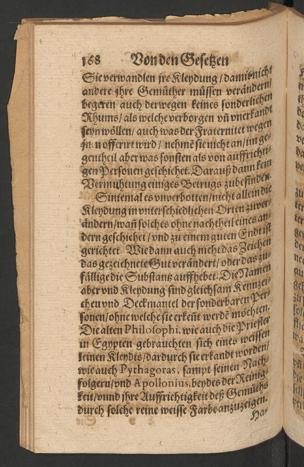 168 Von den Gesetzen
Sie verwandlen jre Kleydung / damit nicht
andere jhre Gemüther müssen verändern /
begeren auch derwegen keines sonderlichen
Rhums / als welche verborgen vñ vnerkand
seyn wöllen / auch was der Fraternitet wegen
jn offerirt wird / nehmẽ sie nicht an / im ge-
gentheil aber was sonsten als von auffrichti-
gen Personen geschichet. Darauß dann kein
Vermuhtung einiges Betrugs zubefinden.
Sintemal es vnverbotten / nicht allein die
Kleydung in vnterschiedlichen Orten zuver-
ändern / wañ solches ohne nachtheil eines an-
dern geschiehet / vnd zu einem guten End ist
gerichtet. Wie dann auch nicht das Zeichen
das gezeichnete Gut verändert / oder das zu-
fällige die Substantz auffhebet. Die Namen
aber vnd Kleydung sind gleichsam Kennzei-
chen vnd Deckmantel der sonderbaren Per-
sonen / ohne welche sie erkeñt werdẽ möchten.
Die alten Philosophi, wie auch die Priester
in Egypten gebrauchten sich eines weissen
leinen Kleydts / dardurch sie erkandt worden /
wie auch Pythagoras, sampt seinen Nach-
folgern / vnd Apollonius, beydes der Reinig-
keit / vnnd jhre Auffrichtigkeit deß Gemühts
durch solche reine weisse Farbe anzuzeigen.